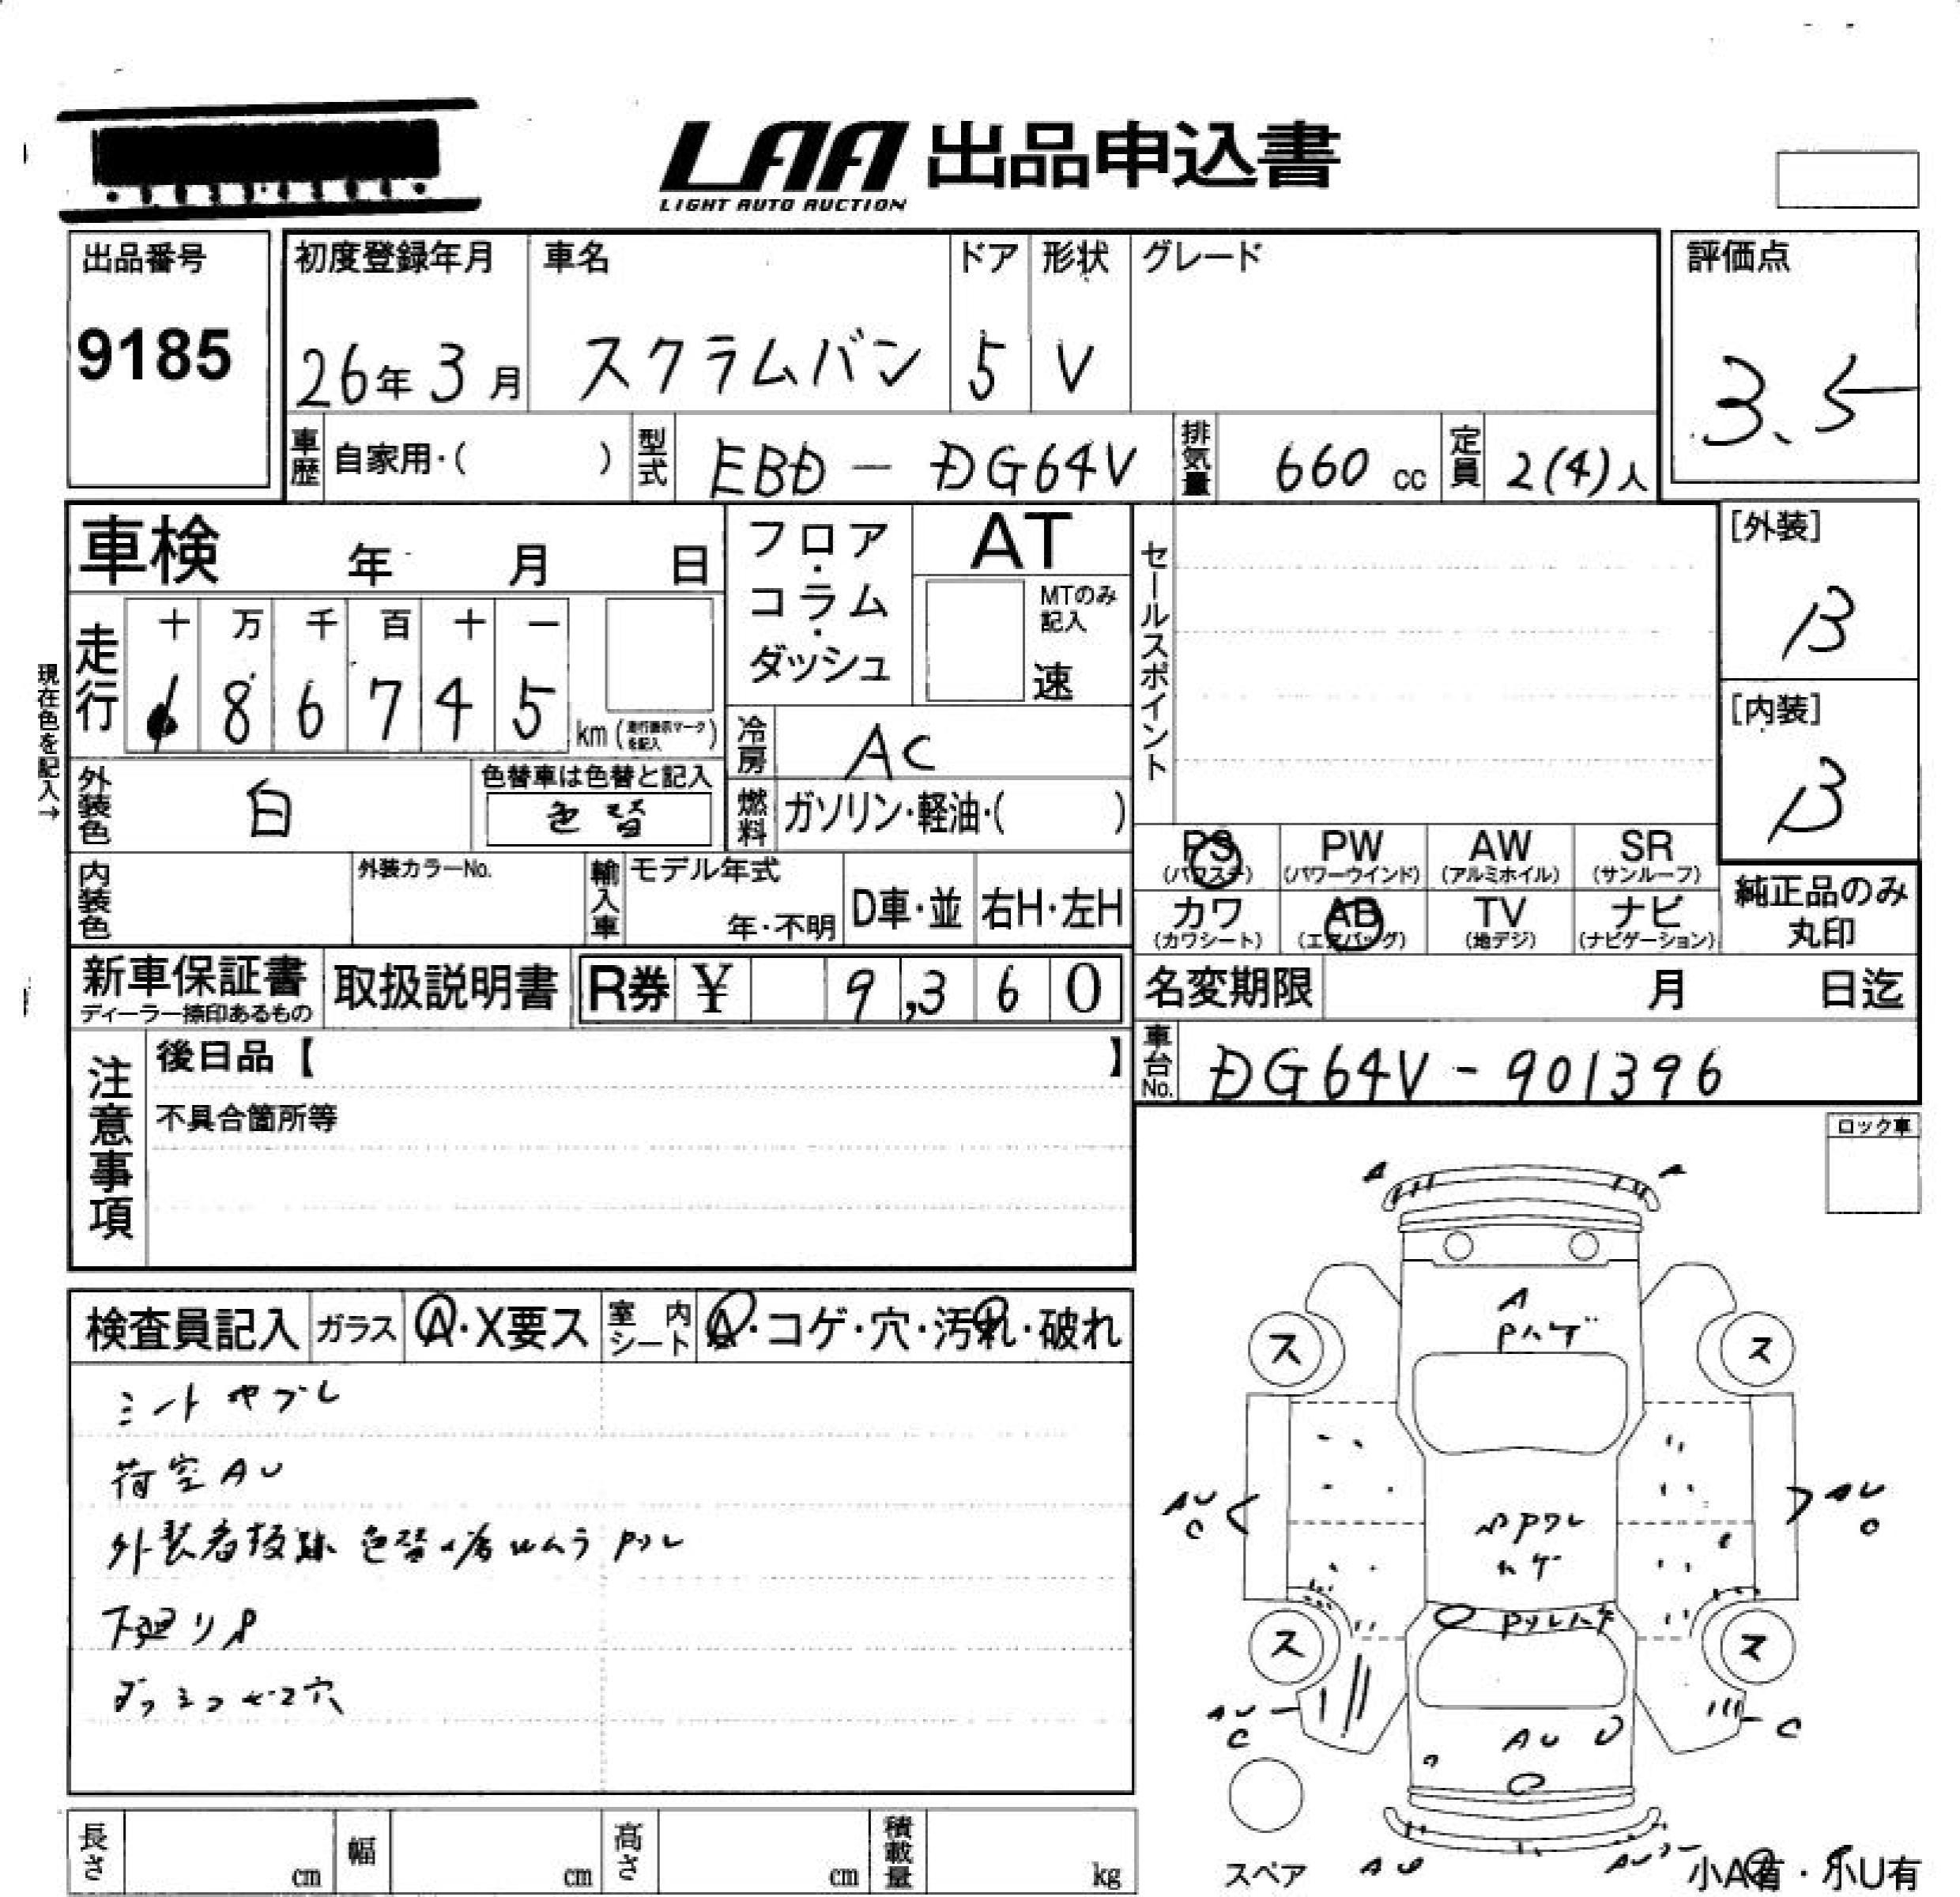 LAA 出品申込書
LIGHT AUTO AUCTION
出品番号
9185
初度登録年月 車名 ドア 形状 グレード
26年 3月 スクラムバン 5 V
評価点
3.5
車歴 自家用・( ) 型式 EBD-DG64V 排気量 660 cc 定員 2(4)人
車検 年 月 日
フロア・コラム・ダッシュ
AT
MTのみ記入
速
セールスポイント
[外装]
B
[内装]
B
現在色を記入→
走行 十 万 千 百 十 一
8 6 7 4 5 km
冷房 AC
外装色 白
色替車は色替と記入
色替
燃料 ガソリン・軽油・( )
PS PW AW SR
(パワステ) (パワーウインド) (アルミホイル) (サンルーフ)
カワ AB TV ナビ
(カワシート) (エアバッグ) (地デジ) (ナビゲーション)
純正品のみ
丸印
内装色 外装カラーNo. 輸入車 モデル年式
年・不明 D車・並 右H・左H
新車保証書 取扱説明書 R券 ¥ 9,360
ディーラー捺印あるもの
名変期限 月 日迄
車台No. DG64V-901396
注意事項
後日品【 】
不具合箇所等
ロック車
検査員記入 ガラス A・X要ス 室内シート A・コゲ・穴・汚れ・破れ
シートヤブレ
荷室AU
外装看板跡 色替
下廻りP
穴
A A
A
Pハゲ
ス ス
AU
C
AU
C
ハゲ
ス ス
AU
C
AU U
C
スペア AU
小A有・小U有
長さ cm 幅 cm 高さ cm 積載量 kg